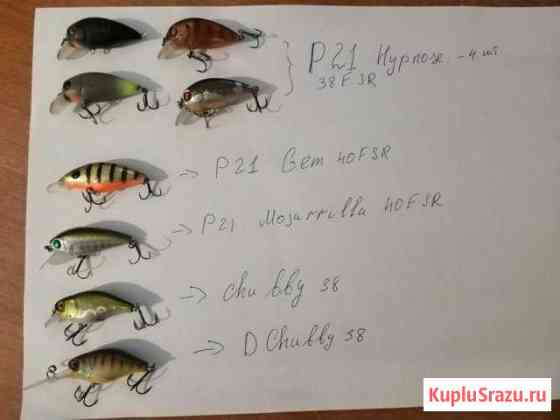 P21 Hypnose - 4 шт
38 F SR
-> P21 Gem 40F SR
-> P21 Mosurrilla 40F SR
-> Chubby 38
-> D Chubby 38
KupluSrazu.ru